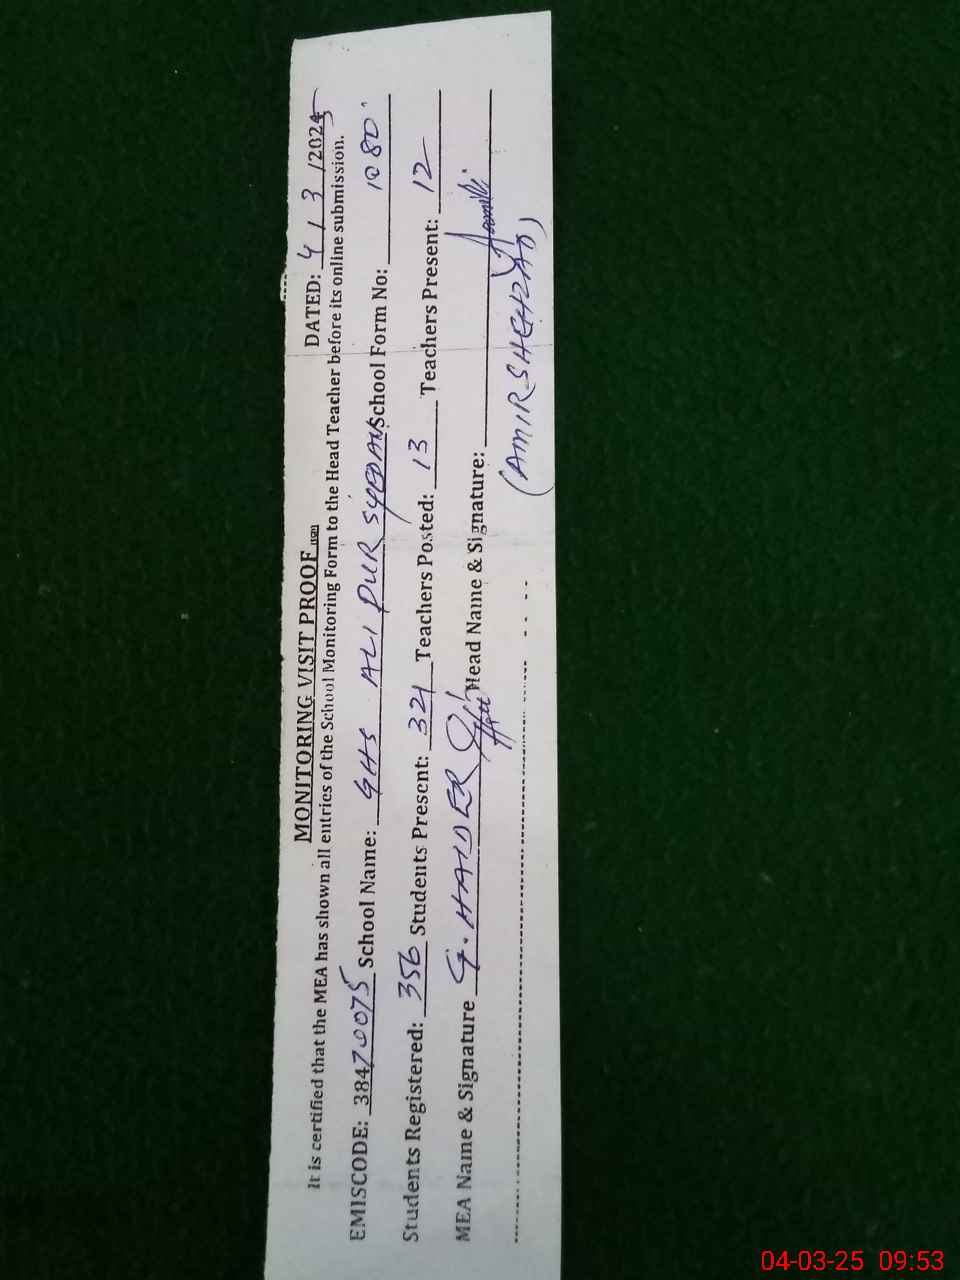 MONITORING VISIT PROOF
DATED: 4/3/2025
It is certified that the MEA has shown all entries of the School Monitoring Form to the Head Teacher before its online submission.
EMISCODE: 38470075 School Name: GHS ALI PUR SYEDAN School Form No: 1080
Students Registered: 356 Students Present: 321 Teachers Posted: 13 Teachers Present: 12
MEA Name & Signature G. HAIDER Head Name & Signature:
(AMIR SHEHZAD)
04-03-25 09:53